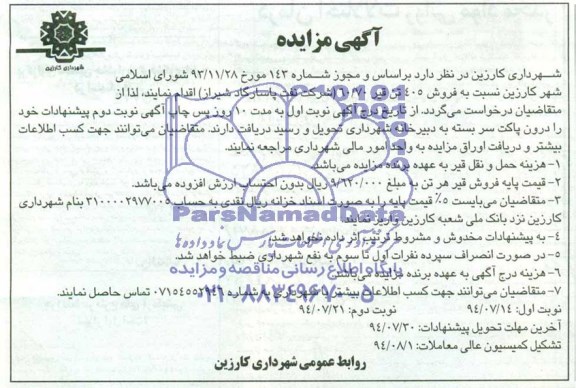 آگهی مزایده
شهرداری کارزین
شهرداری کارزین در نظر دارد براساس و مجوز شماره ۱۴۳ مورخ ۹۳/۱۱/۲۸ شورای اسلامی
شهر کارزین نسبت به فروش ۴۰۵ تن قیر ۶۰/۷۰ (شرکت نفت پاسارگاد شیراز) اقدام نمایند، لذا از
متقاضیان درخواست می‌گردد. از تاریخ درج آگهی نوبت اول به مدت ۱۰ روز پس چاپ آگهی نوبت دوم پیشنهادات خود
را درون پاکت سر بسته به دبیرخانه شهرداری تحویل و رسید دریافت دارند. متقاضیان می‌توانند جهت کسب اطلاعات
بیشتر و دریافت اوراق مزایده به واحد امور مالی شهرداری مراجعه نمایند.
۱- هزینه حمل و نقل قیر به عهده برنده مزایده می‌باشد.
۲- قیمت پایه فروش قیر هر تن به مبلغ ۹/۶۲۰/۰۰۰ ریال بدون احتساب ارزش افزوده می‌باشد.
۳- متقاضیان می‌بایست ۵٪ قیمت پایه را به صورت اسناد خزانه یا نقدی به حساب ۳۱۰۰۰۰۲۹۷۷۰۰۵ بنام شهرداری
کارزین نزد بانک ملی شعبه کارزین واریز نمایند.
ParsNamadData
۴- به پیشنهادات مخدوش و مشروط ترتیب اثر داده نخواهد شد.
۵- در صورت انصراف سپرده نفرات اول تا سوم به نفع شهرداری ضبط خواهد شد.
پایگاه اطلاع رسانی مناقصه و مزایده
۶- هزینه درج آگهی به عهده برنده مزایده می‌باشد.
۰۲۱-۸۸۳۴۹۶۷۰-۵
۷- متقاضیان می‌توانند جهت کسب اطلاعات بیشتر با شهرداری به شماره تماس حاصل نمایند.
نوبت اول: ۹۴/۰۷/۱۴ نوبت دوم: ۹۴/۰۷/۲۱
آخرین مهلت تحویل پیشنهادات: ۹۴/۰۷/۳۰
تشکیل کمیسیون عالی معاملات: ۹۴/۰۸/۱
روابط عمومی شهرداری کارزین